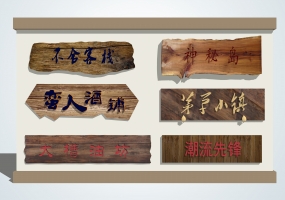 不舍客栈
神秘岛
蛮人酒铺
茅草小镇
潮流先锋